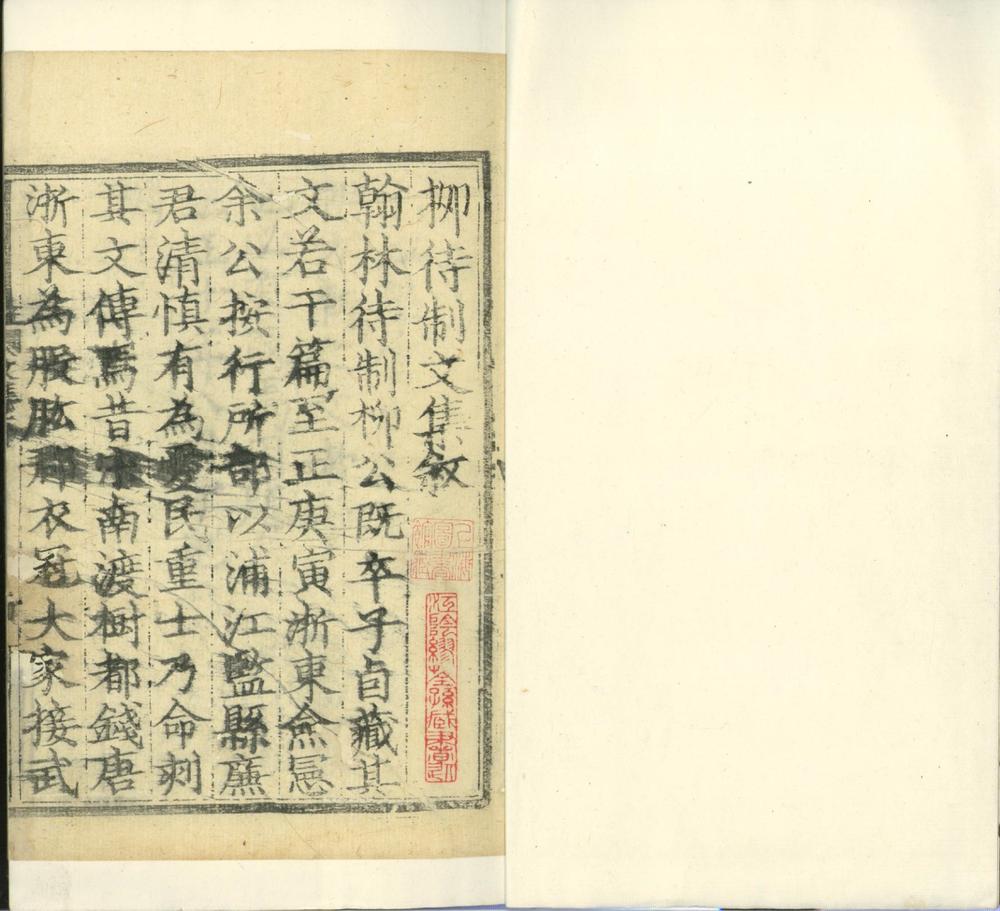 栁待制文集敘
翰林待制柳公既卒子卣藏其
文若干篇至正庚寅浙東僉憲
余公按行所部以浦江監縣廉
君清慎有為愛民重士乃命刻
其文傳焉昔宋南渡樹都錢唐
浙東為股肱郡衣冠大家接武
江陰繆荃孫藏書記